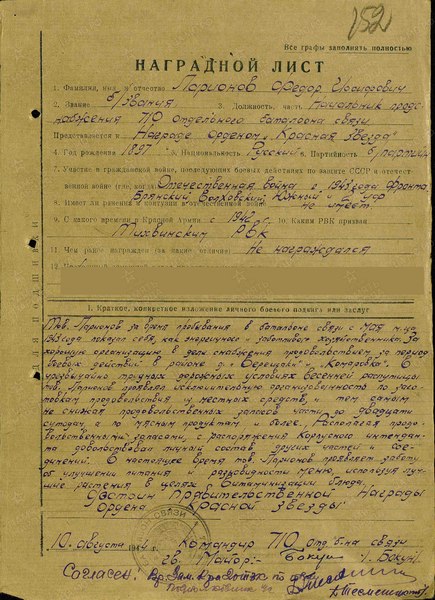 152
Все графы заполнять полностью
НАГРАДНОЙ ЛИСТ
1. Фамилия, имя и отчество Ларионов Федор
2. Звание б/звания 3. Должность, часть Начальник прод-
снабжения 710 отдельного баталиона связи
Представляется к Награде орденом „Красная Звезда"
4. Год рождения 1897 5. Национальность Русский 6. Партийность б/партийн
7. Участие в гражданской войне, последующих боевых действиях по защите СССР и отечест-
венной войне (где, когда) Отечественная война с 1943 года фронта
Брянский Волховский Южный и
8. Имеет ли ранения и контузии в отечественной войне не имеет
9. С какого времени в Красной Армии с 1942 г. 10. Каким РВК призван
Тихвинским РВК
11. Чем ранее награжден (за какие отличия) Не награждался
ДЛЯ ПОДШИВКИ
I. Краткое, конкретное изложение личного боевого подвига или заслуг
Тов. Ларионов за время пребывания в баталоне связи с мая м-ца
1943 года показал себя, как энергичного и работоспос хозяйственника. За
хорошую организацию в деле снабжения продовольствием за период
боевых действий в районе д. „Берещаги" и „Комаровка". В
чрезвычайно трудных дорожных условиях весенней распутицы
тов. Ларионов проявлял исключительную организованность по заго-
товкам продовольствия из местных средств, и тем самым
не снижал продовольственных запасов части до двадцати
сутодач, а по мясным продуктам и более. Располагая продо-
вольственными запасами, с распоряжения Корпусного интендан-
та довольствовал личный состав других частей и сое-
динений. В настоящее время тов. Ларионов проявляет заботу
об улучшении питания и разновидности меню, используя луч-
шие растения в целях витаминизации блюда.
Достоин Правительственной Награды
ордена „Красной Звезды"
СВЯЗИ
10. августа 1944 Командир 710 отд. б-на связи
гв. Майор:- Бокун /. Бокун/.
Согласен: